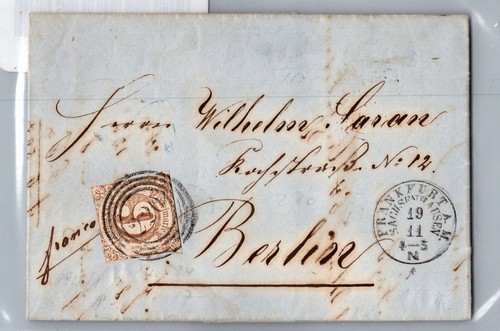 Herrn Wilhelm Saran
Kochstraße No: 12.
franco
Berlin
FRANKFURT A. M.
SACHSENHAUSEN
19
11
4-5
N